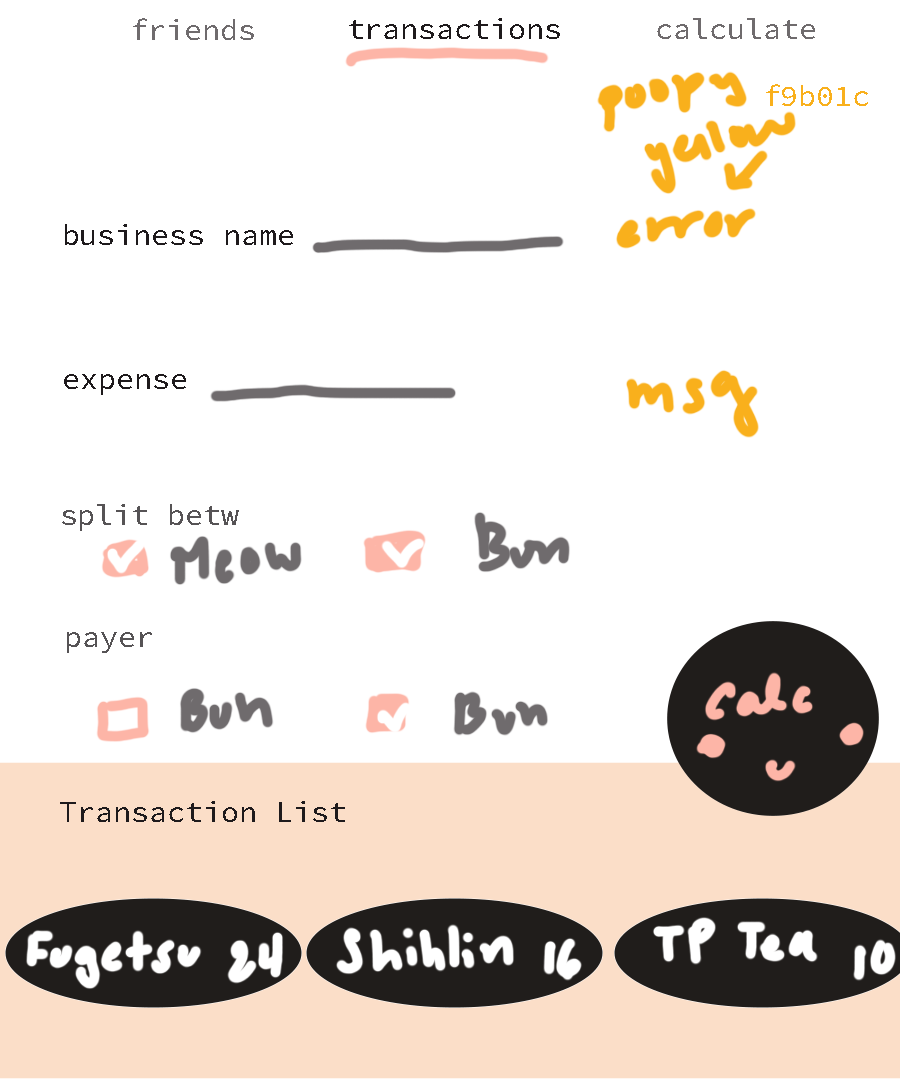 friends transactions calculate
poopy f9b01c
yellow
business name error
expense msg
split betw
Meow Bun
payer
Bun Bun
calc
Transaction List
Fugetsu 24 Shihlin 16 TP Tea 10